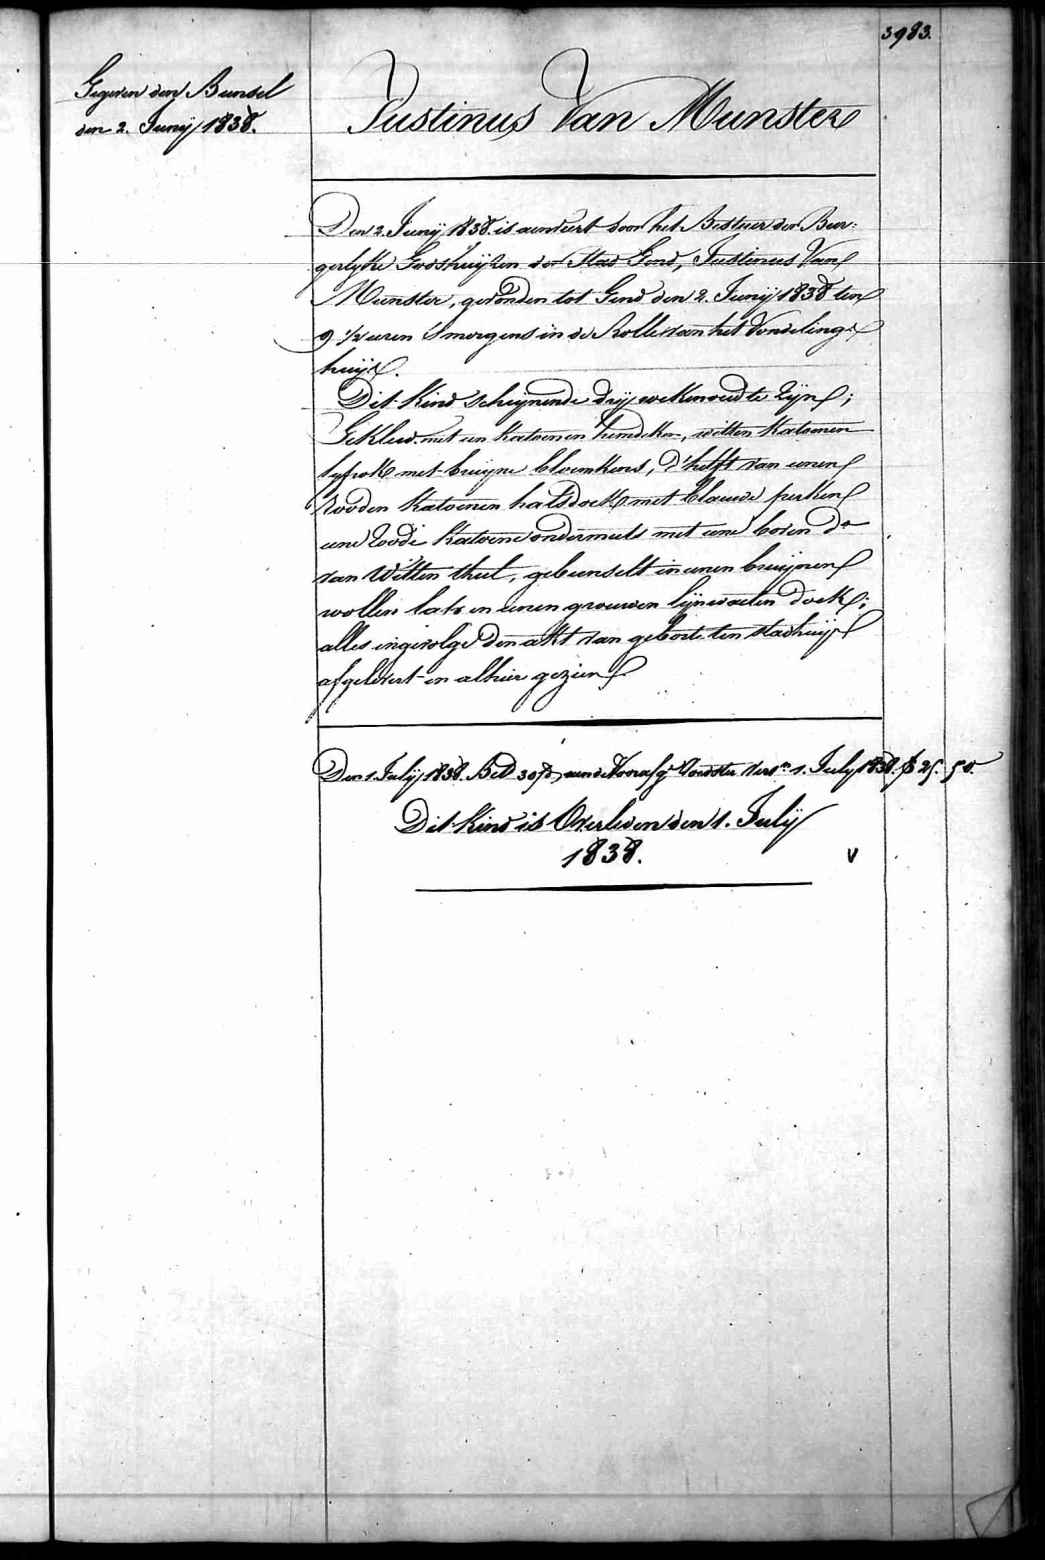 3983.
Gegeven den Bunsel
den 2. Junij 1838.
Justinus Van Munster
Den 2. Junij 1838. is aenveert door het Bestuer der Bur:
gerlyke Godshuijzen der Stad Gend, Justinus Van
Munster, gevonden tot Gend den 2. Junij 1838 ten
9 ½ uren 's morgens in de Rolle van het Vondeling:
huijs.
Dit Kind scheijnende drij weken oud te zijn;
Gekleed met een katoenen hemdeken, witten katoenen
lyfrok met bruijne bloemkens, d'helft van eenen
rooden katoenen halsdoek met blauwe perken
eene roode katoene ondermuts met eene boven do
van witten thul, gebunselt in eenen bruijnen
wollen lats en eenen grouwen lijnwaeten doek;
alles ingevolge den akt van geboorte ten stadhuijse
afgelevert en alhier gezien
Den 1. Julij 1838. Bet. 30 aen de Voedster 1. July 1838. 25. 50.
Dit Kind is Overleden den 1. Julij
1838. v